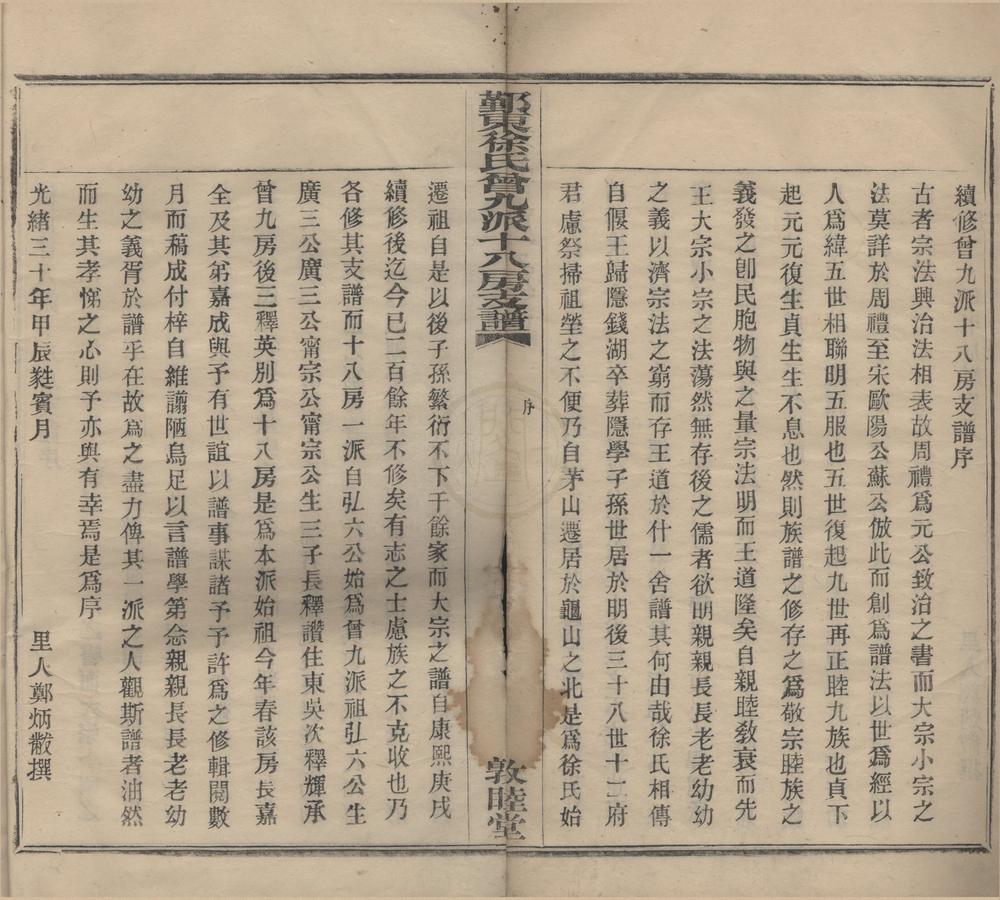 續修曾九派十八房支譜序
古者宗法興治法相表故周禮爲元公致治之書而大宗小宗之
法莫詳於周禮至宋歐陽公蘇公倣此而創爲譜法以世爲經以
人爲緯五世相聯明五服也五世復起九世再正睦九族也貞下
起元元復生貞生生不息也然則族譜之修存之爲敬宗睦族之
義發之卽民胞物與之量宗法明而王道隆矣自親睦敎衰而先
王大宗小宗之法蕩然無存後之儒者欲明親親長長老老幼幼
之義以濟宗法之窮而存王道於什一舍譜其何由哉徐氏相傳
自偃王歸隱錢湖卒葬隱學子孫世居於明後三十八世十二府
君慮祭掃祖塋之不便乃自茅山遷居於龜山之北是爲徐氏始
鄞東徐氏曾九派十八房支譜
序
敦睦堂
遷祖自是以後子孫繁衍不下千餘家而大宗之譜自康熙庚戌
續修後迄今已二百餘年不修矣有志之士慮族之不克收也乃
各修其支譜而十八房一派自弘六公始爲曾九派祖弘六公生
廣三公廣三公甯宗公甯宗公生三子長釋讚住東吳次釋輝承
曾九房後三釋英別爲十八房是爲本派始祖今年春該房長嘉
全及其弟嘉成與予有世誼以譜事謀諸予予許爲之修輯閱數
月而稿成付梓自維謭陋烏足以言譜學第念親親長長老老幼
幼之義胥於譜乎在故爲之盡力俾其一派之人觀斯譜者油然
而生其孝悌之心則予亦與有幸焉是爲序
光緒三十年甲辰蕤賓月
里人鄭炳黻撰